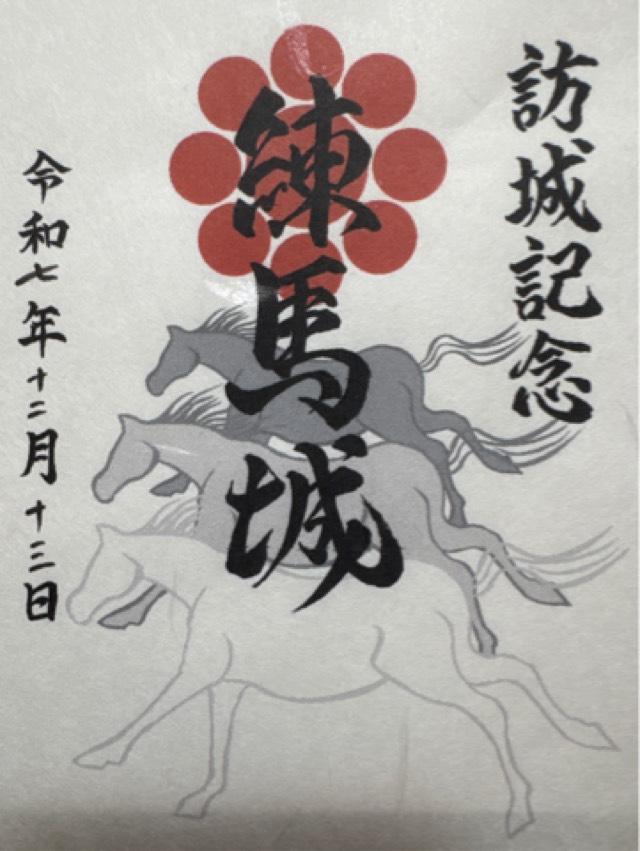 訪城記念
練馬城
令和七年十二月十三日